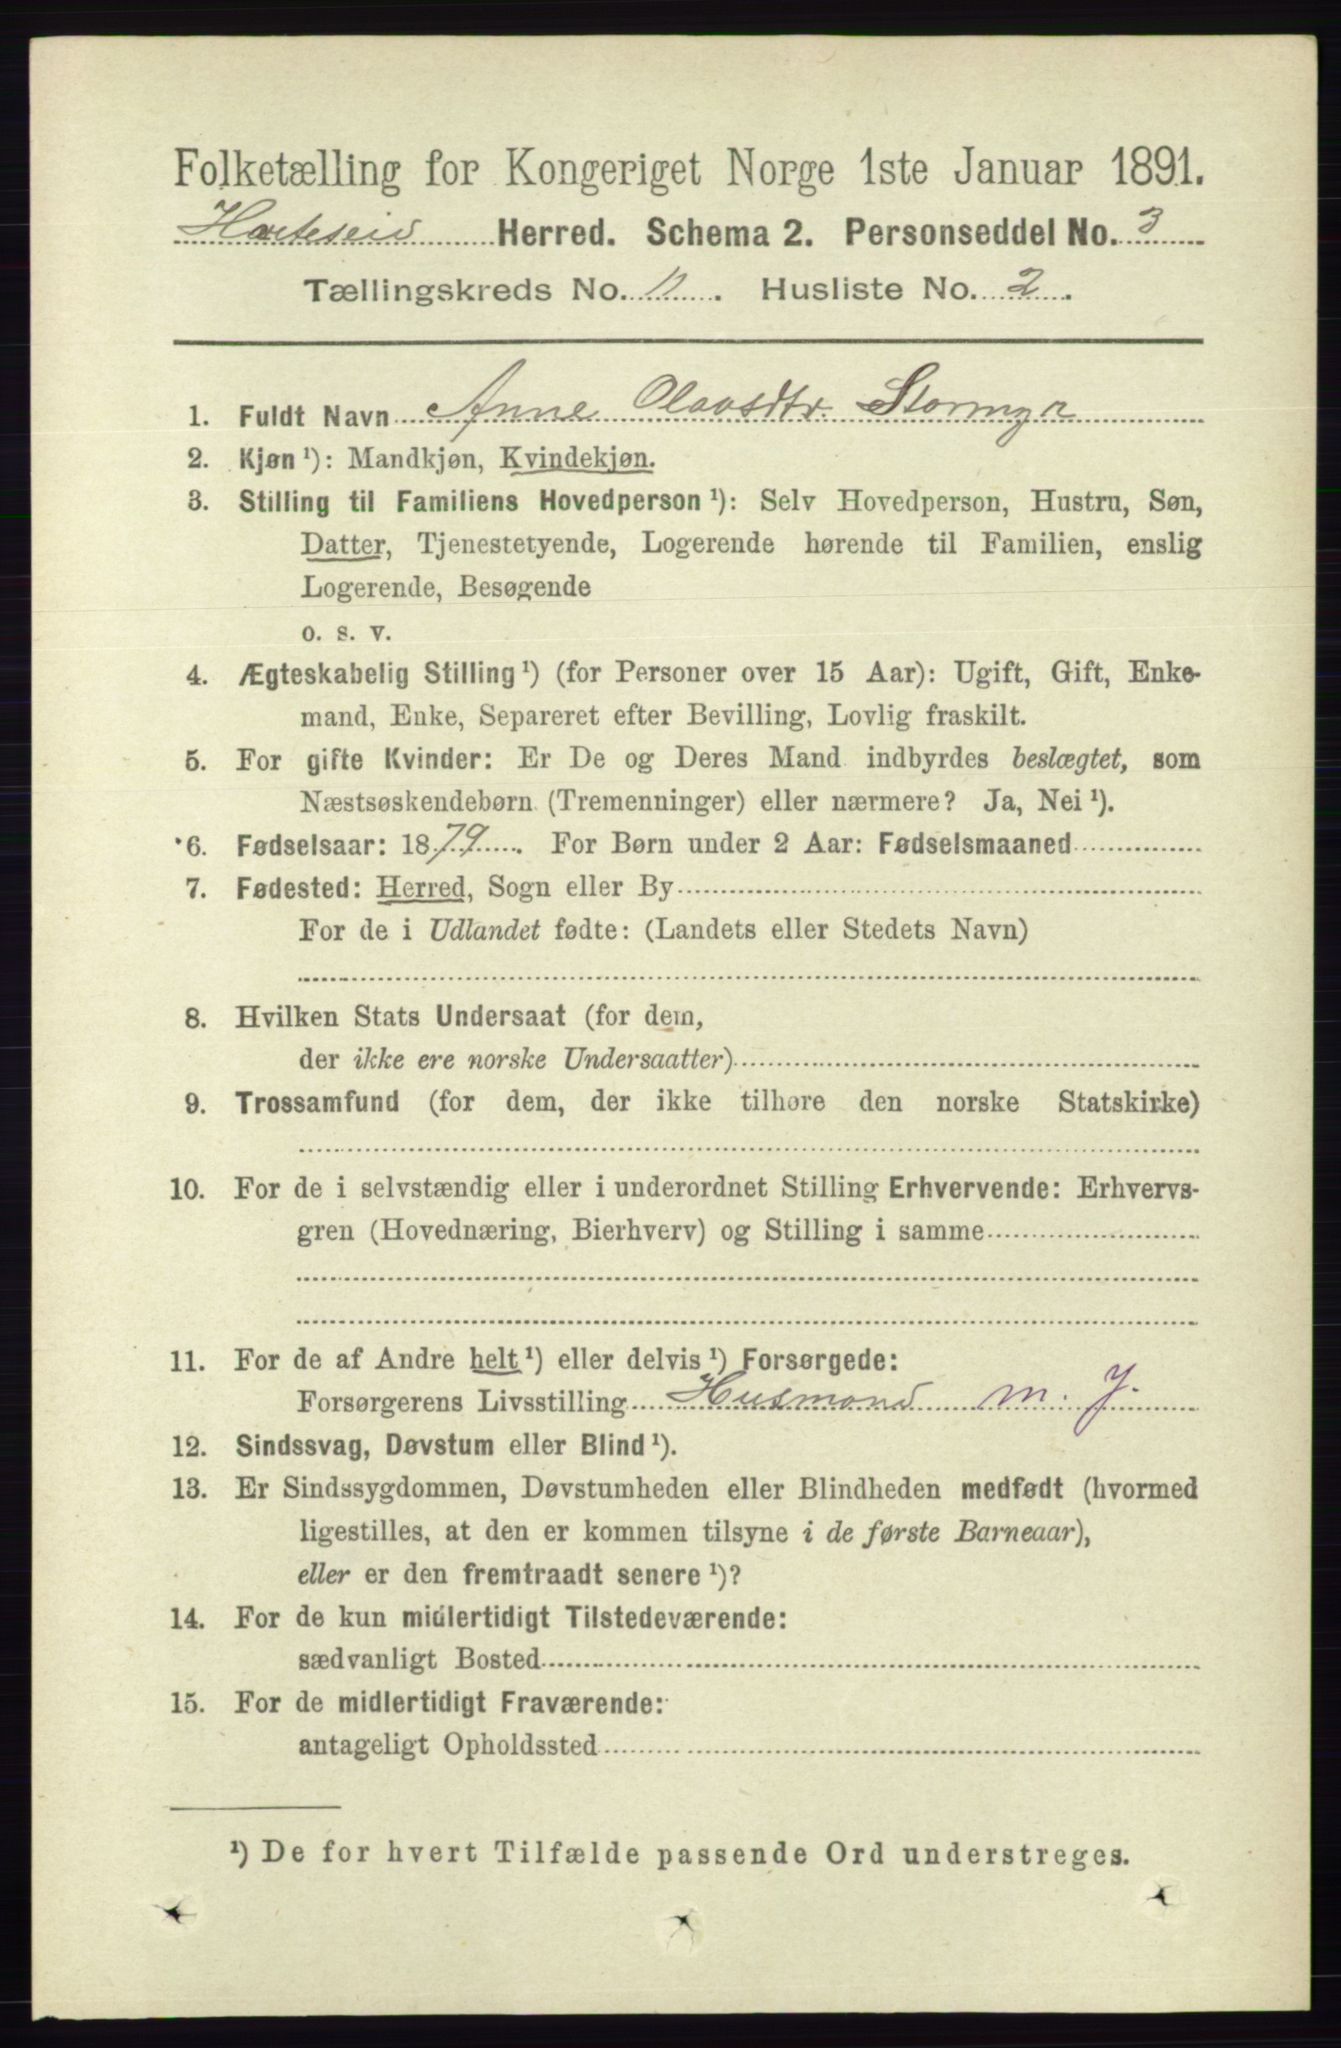 Folketælling for Kongeriget Norge 1ste Januar 1891.
Hviteseid Herred. Schema 2. Personseddel No. 3
Tællingskreds No. 11. Husliste No. 2.
1. Fuldt Navn Anne Olavsdtr. Stormyr
2. Kjøn ¹): Mandkjøn, Kvindekjøn.
3. Stilling til Familiens Hovedperson ¹): Selv Hovedperson, Hustru, Søn,
Datter, Tjenestetyende, Logerende hørende til Familien, enslig
Logerende, Besøgende
o. s. v.
4. Ægteskabelig Stilling ¹) (for Personer over 15 Aar): Ugift, Gift, Enke-
mand, Enke, Separeret efter Bevilling, Lovlig fraskilt.
5. For gifte Kvinder: Er De og Deres Mand indbyrdes beslægtet, som
Næstsøskendebørn (Tremenninger) eller nærmere? Ja, Nei ¹).
6. Fødselsaar: 1879. For Børn under 2 Aar: Fødselsmaaned
7. Fødested: Herred, Sogn eller By
For de i Udlandet fødte: (Landets eller Stedets Navn)
8. Hvilken Stats Undersaat (for dem,
der ikke ere norske Undersaatter)
9. Trossamfund (for dem, der ikke tilhøre den norske Statskirke)
10. For de i selvstændig eller i underordnet Stilling Erhvervende: Erhvervs-
gren (Hovednæring, Bierhverv) og Stilling i samme
11. For de af Andre helt ¹) eller delvis ¹) Forsørgede:
Forsørgerens Livsstilling Husmand m. J.
12. Sindssvag, Døvstum eller Blind ¹).
13. Er Sindssygdommen, Døvstumheden eller Blindheden medfødt (hvormed
ligestilles, at den er kommen tilsyne i de første Barneaar),
eller er den fremtraadt senere ¹)?
14. For de kun midlertidigt Tilstedeværende:
sædvanligt Bosted
15. For de midlertidigt Fraværende:
antageligt Opholdssted
¹) De for hvert Tilfælde passende Ord understreges.